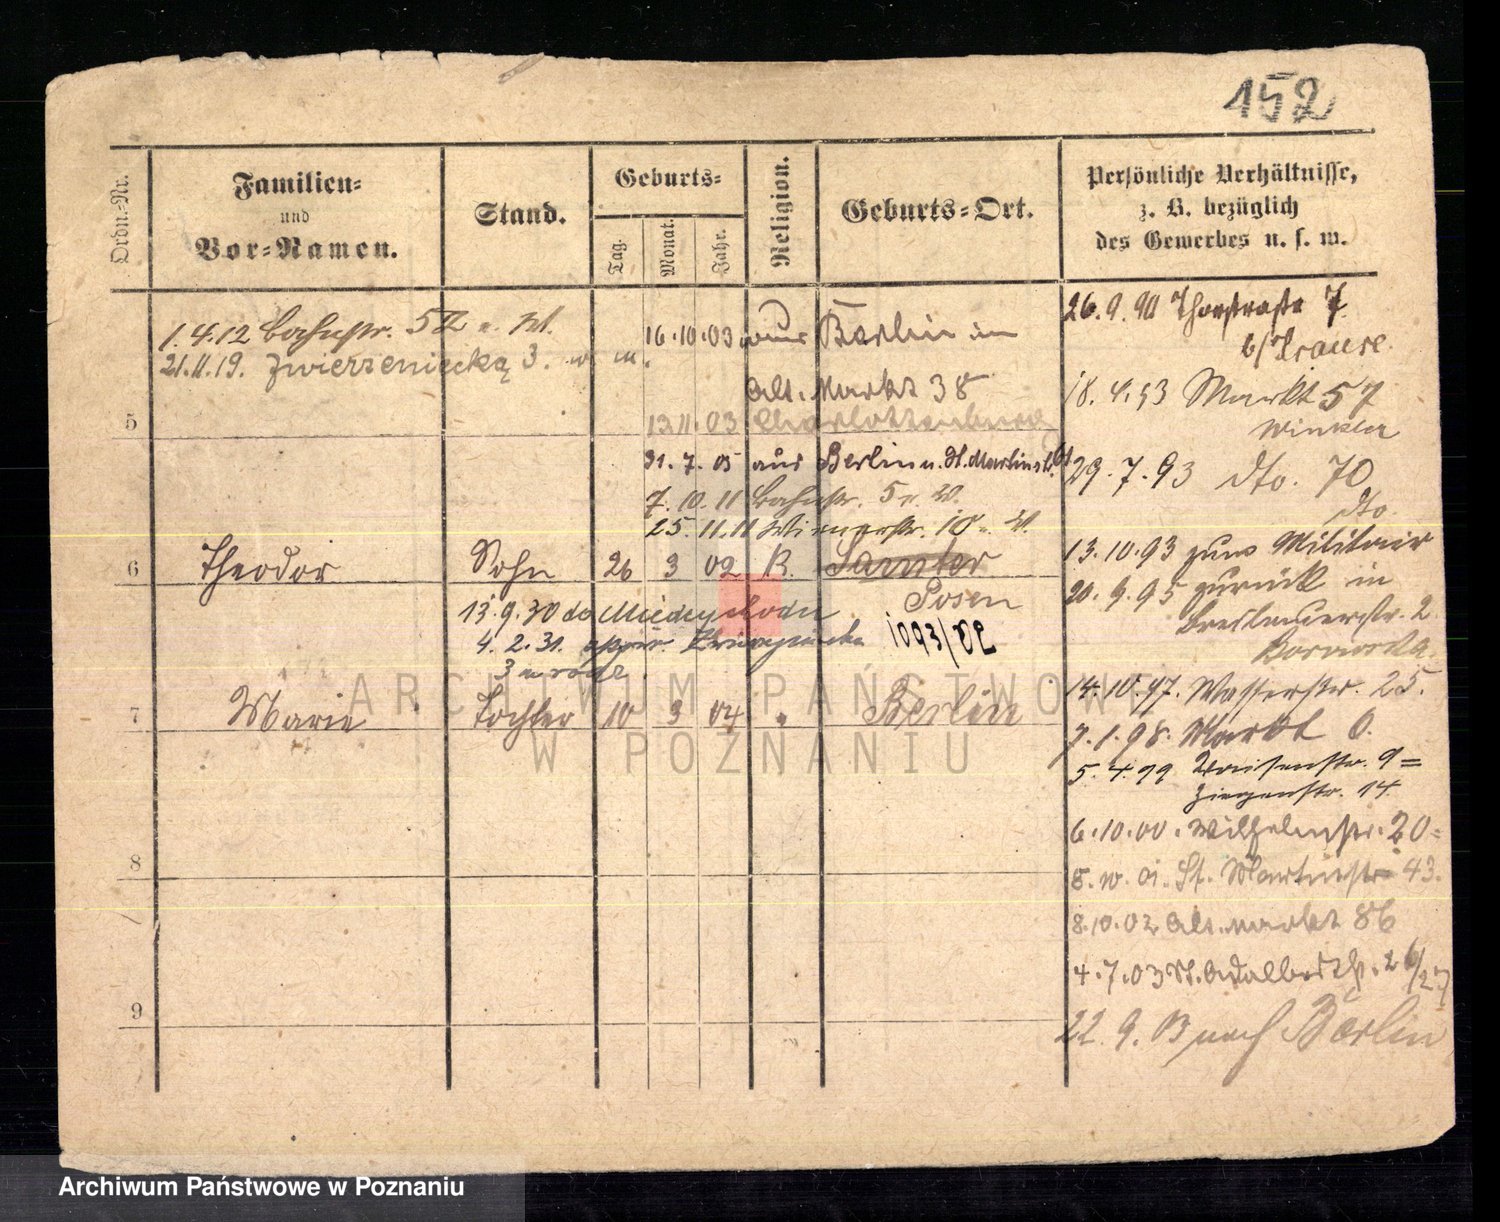 152
Ordn.-Nr.
Familien-
und
Vor-Namen.
Stand.
Geburts-
Tag.
Monat.
Jahr.
Religion.
Geburts-Ort.
Persönliche Verhältnisse,
z. B. bezüglich
des Gewerbes u. s. w.
1.4.12 Bahnstr.
21.11.19. Zwierzeniecką 3. w m.
16.10.03 aus Berlin in
Alt. Markt 38
13.11.03 Charlottenburg
31.7.05 aus Berlin n. St. Martinstr.
7.10.11 Bahnstr. 5
25.11.11
5
6 Theodor Sohn 26 3 02 K. Samter
Posen
1093/02
13.9.30 do Międzychodu
4.2.31.
7 Marie Tochter 10 3 04 " Berlin
8
9
26.9.90 Thorstraße 7
b/Krause
18.4.93 Markt 57
Winkler
29.7.93 dto. 70
dto.
13.10.93 zum Militair
20.9.95 zurück in
Breslauerstr. 2
14.10.97. Wasserstr. 25.
7.1.98. Markt 6.
5.4.99 Waisenstr. 9 =
Ziegenstr. 14
6.10.00. Wilhelmstr. 20
St. Martinstr 43.
8.10.02 Alt. Markt 86
4.7.03 St. Adalbertstr. 26/27
22.9.03 nach Berlin
ARCHIWUM PAŃSTWOWE
W POZNANIU
Archiwum Państwowe w Poznaniu